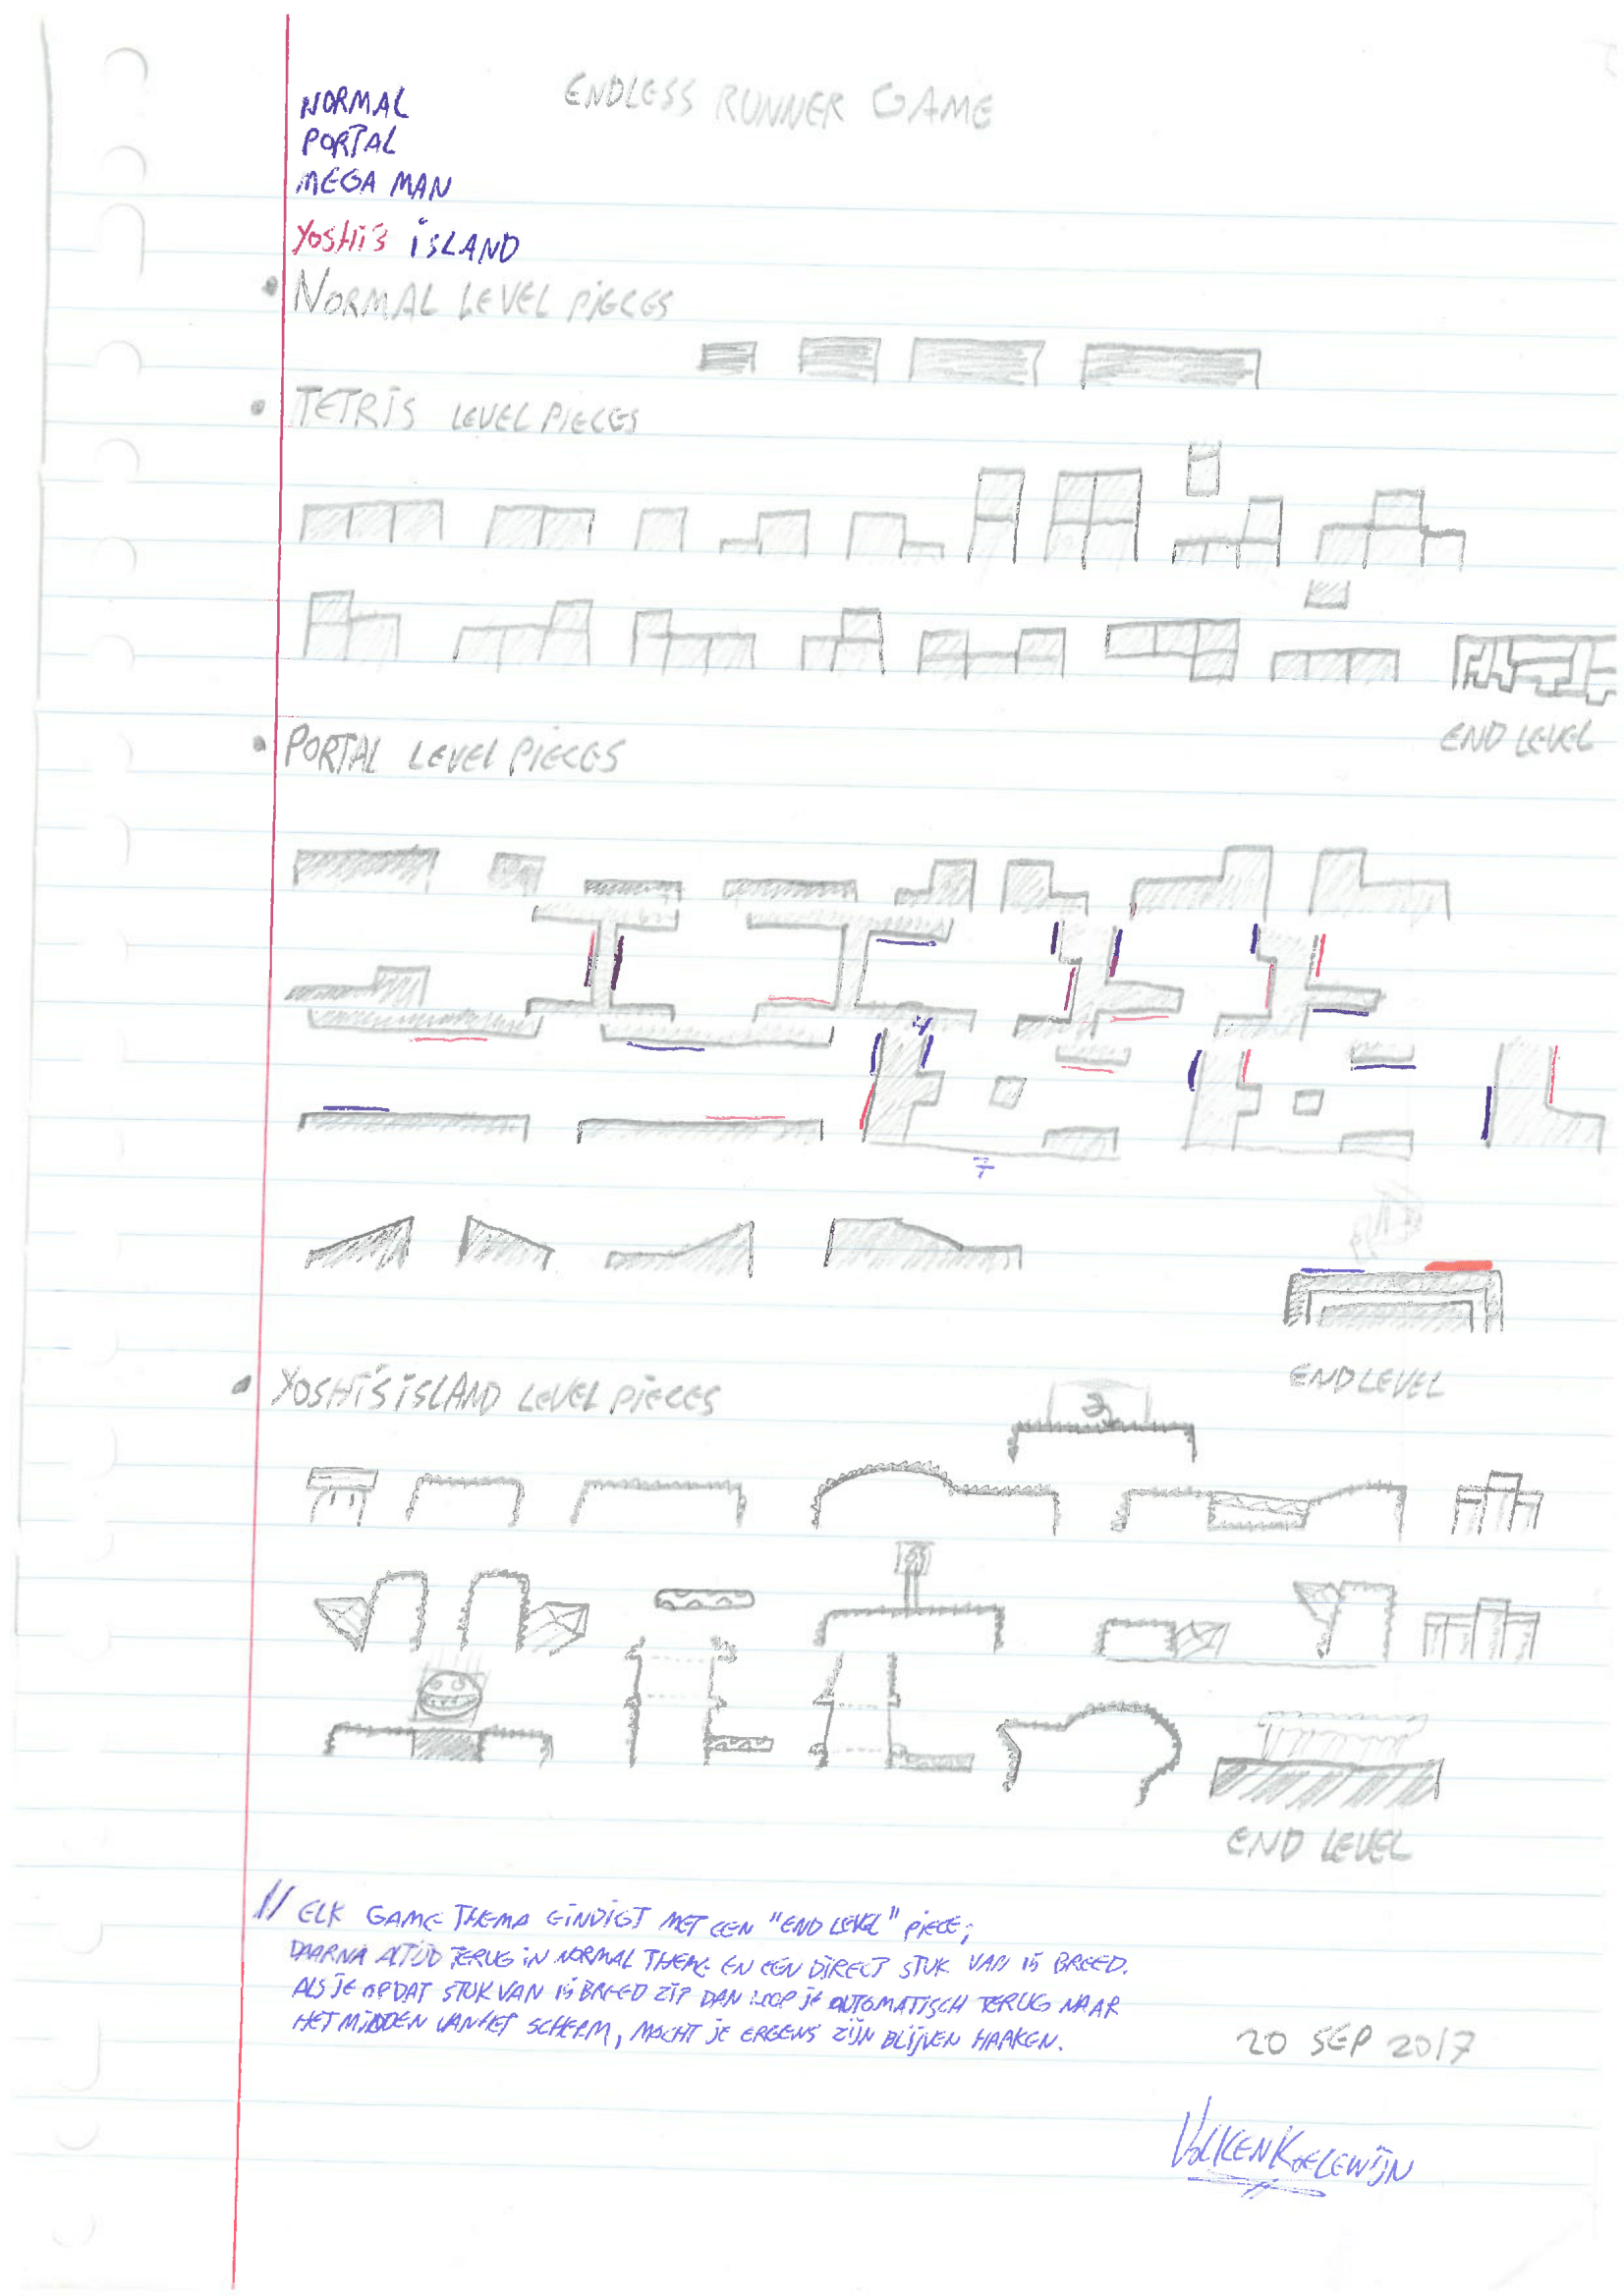 ENDLESS RUNNER GAME
NORMAL
PORTAL
MEGA MAN
YOSHI'S ISLAND
• NORMAL LEVEL PIECES
• TETRIS LEVEL PIECES
END LEVEL
• PORTAL LEVEL PIECES
4
7
END LEVEL
• YOSHI'S ISLAND LEVEL PIECES
END LEVEL
// ELK GAME THEMA EINDIGT MET EEN "END LEVEL" PIECE;
DAARNA ALTIJD TERUG IN NORMAL THEME EN EEN DIRECT STUK VAN 15 BREED.
ALS JE OP DAT STUK VAN 15 BREED ZIT DAN LOOP JE AUTOMATISCH TERUG NAAR
HET MIDDEN VAN HET SCHERM, MOCHT JE ERGENS ZIJN BLIJVEN HAAKEN.
20 SEP 2017
VOLKEN KOELEWIJN